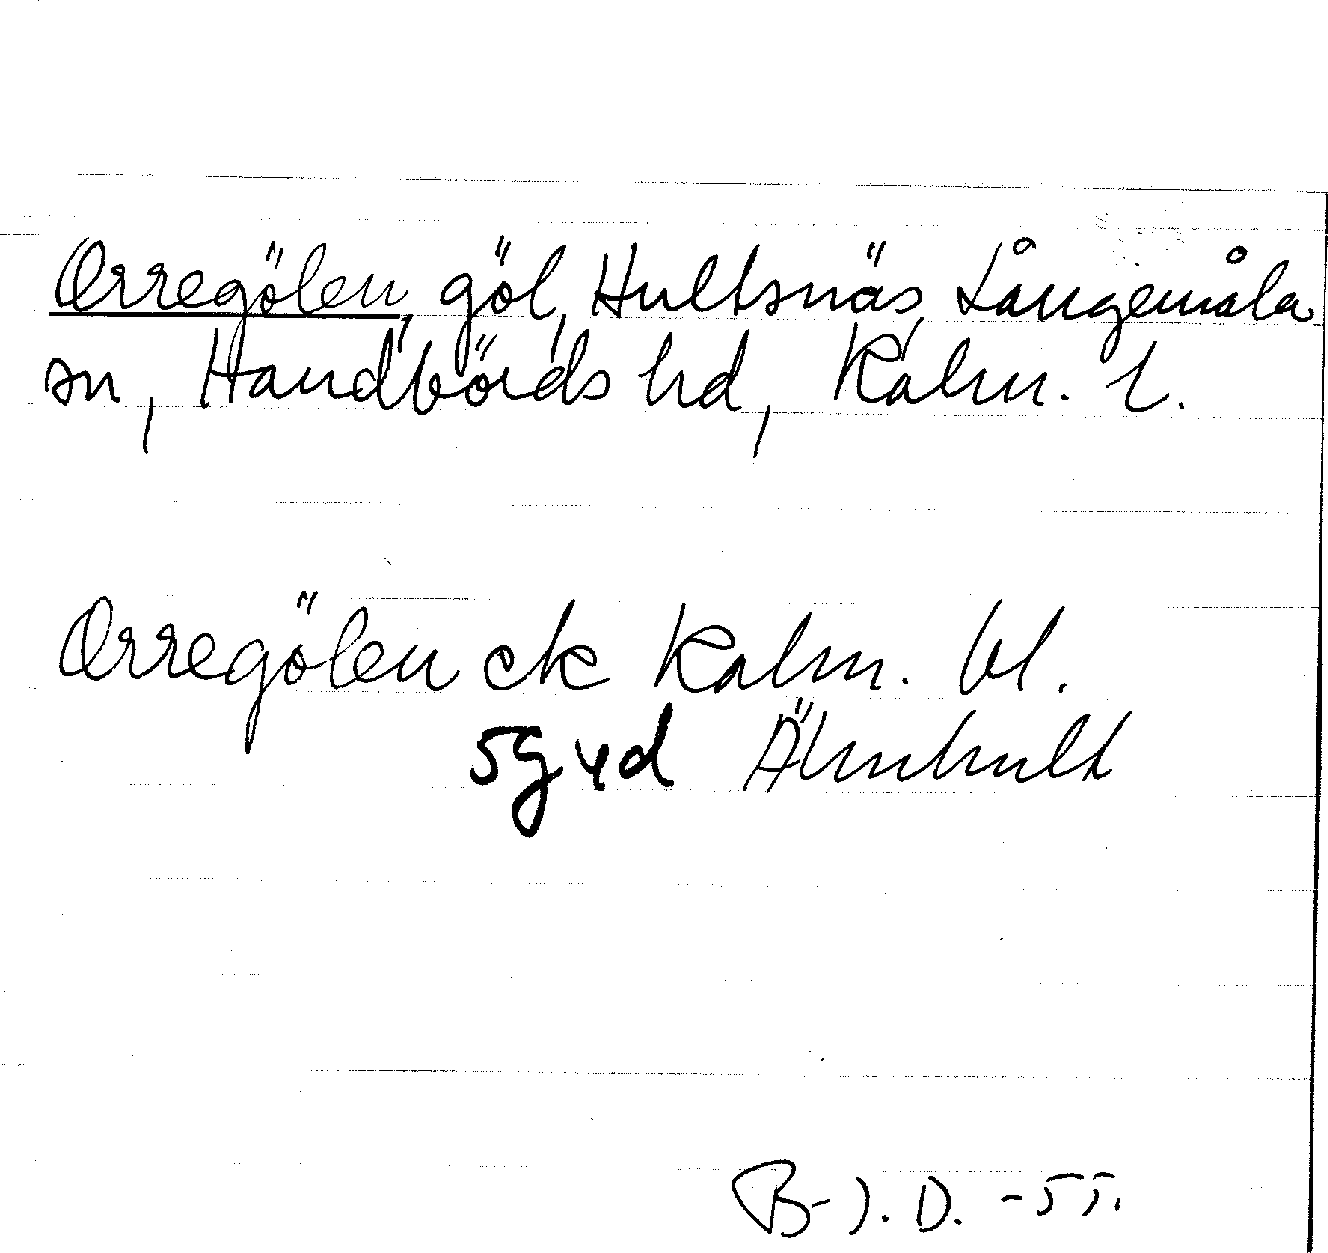 Orregölen, göl, Hultsnäs, Långemåla
sn, Handbörds hd, Kalm. l.
Orregölen ek Kalm. bl.
5g4d Älmhult
B-J. D. -55.